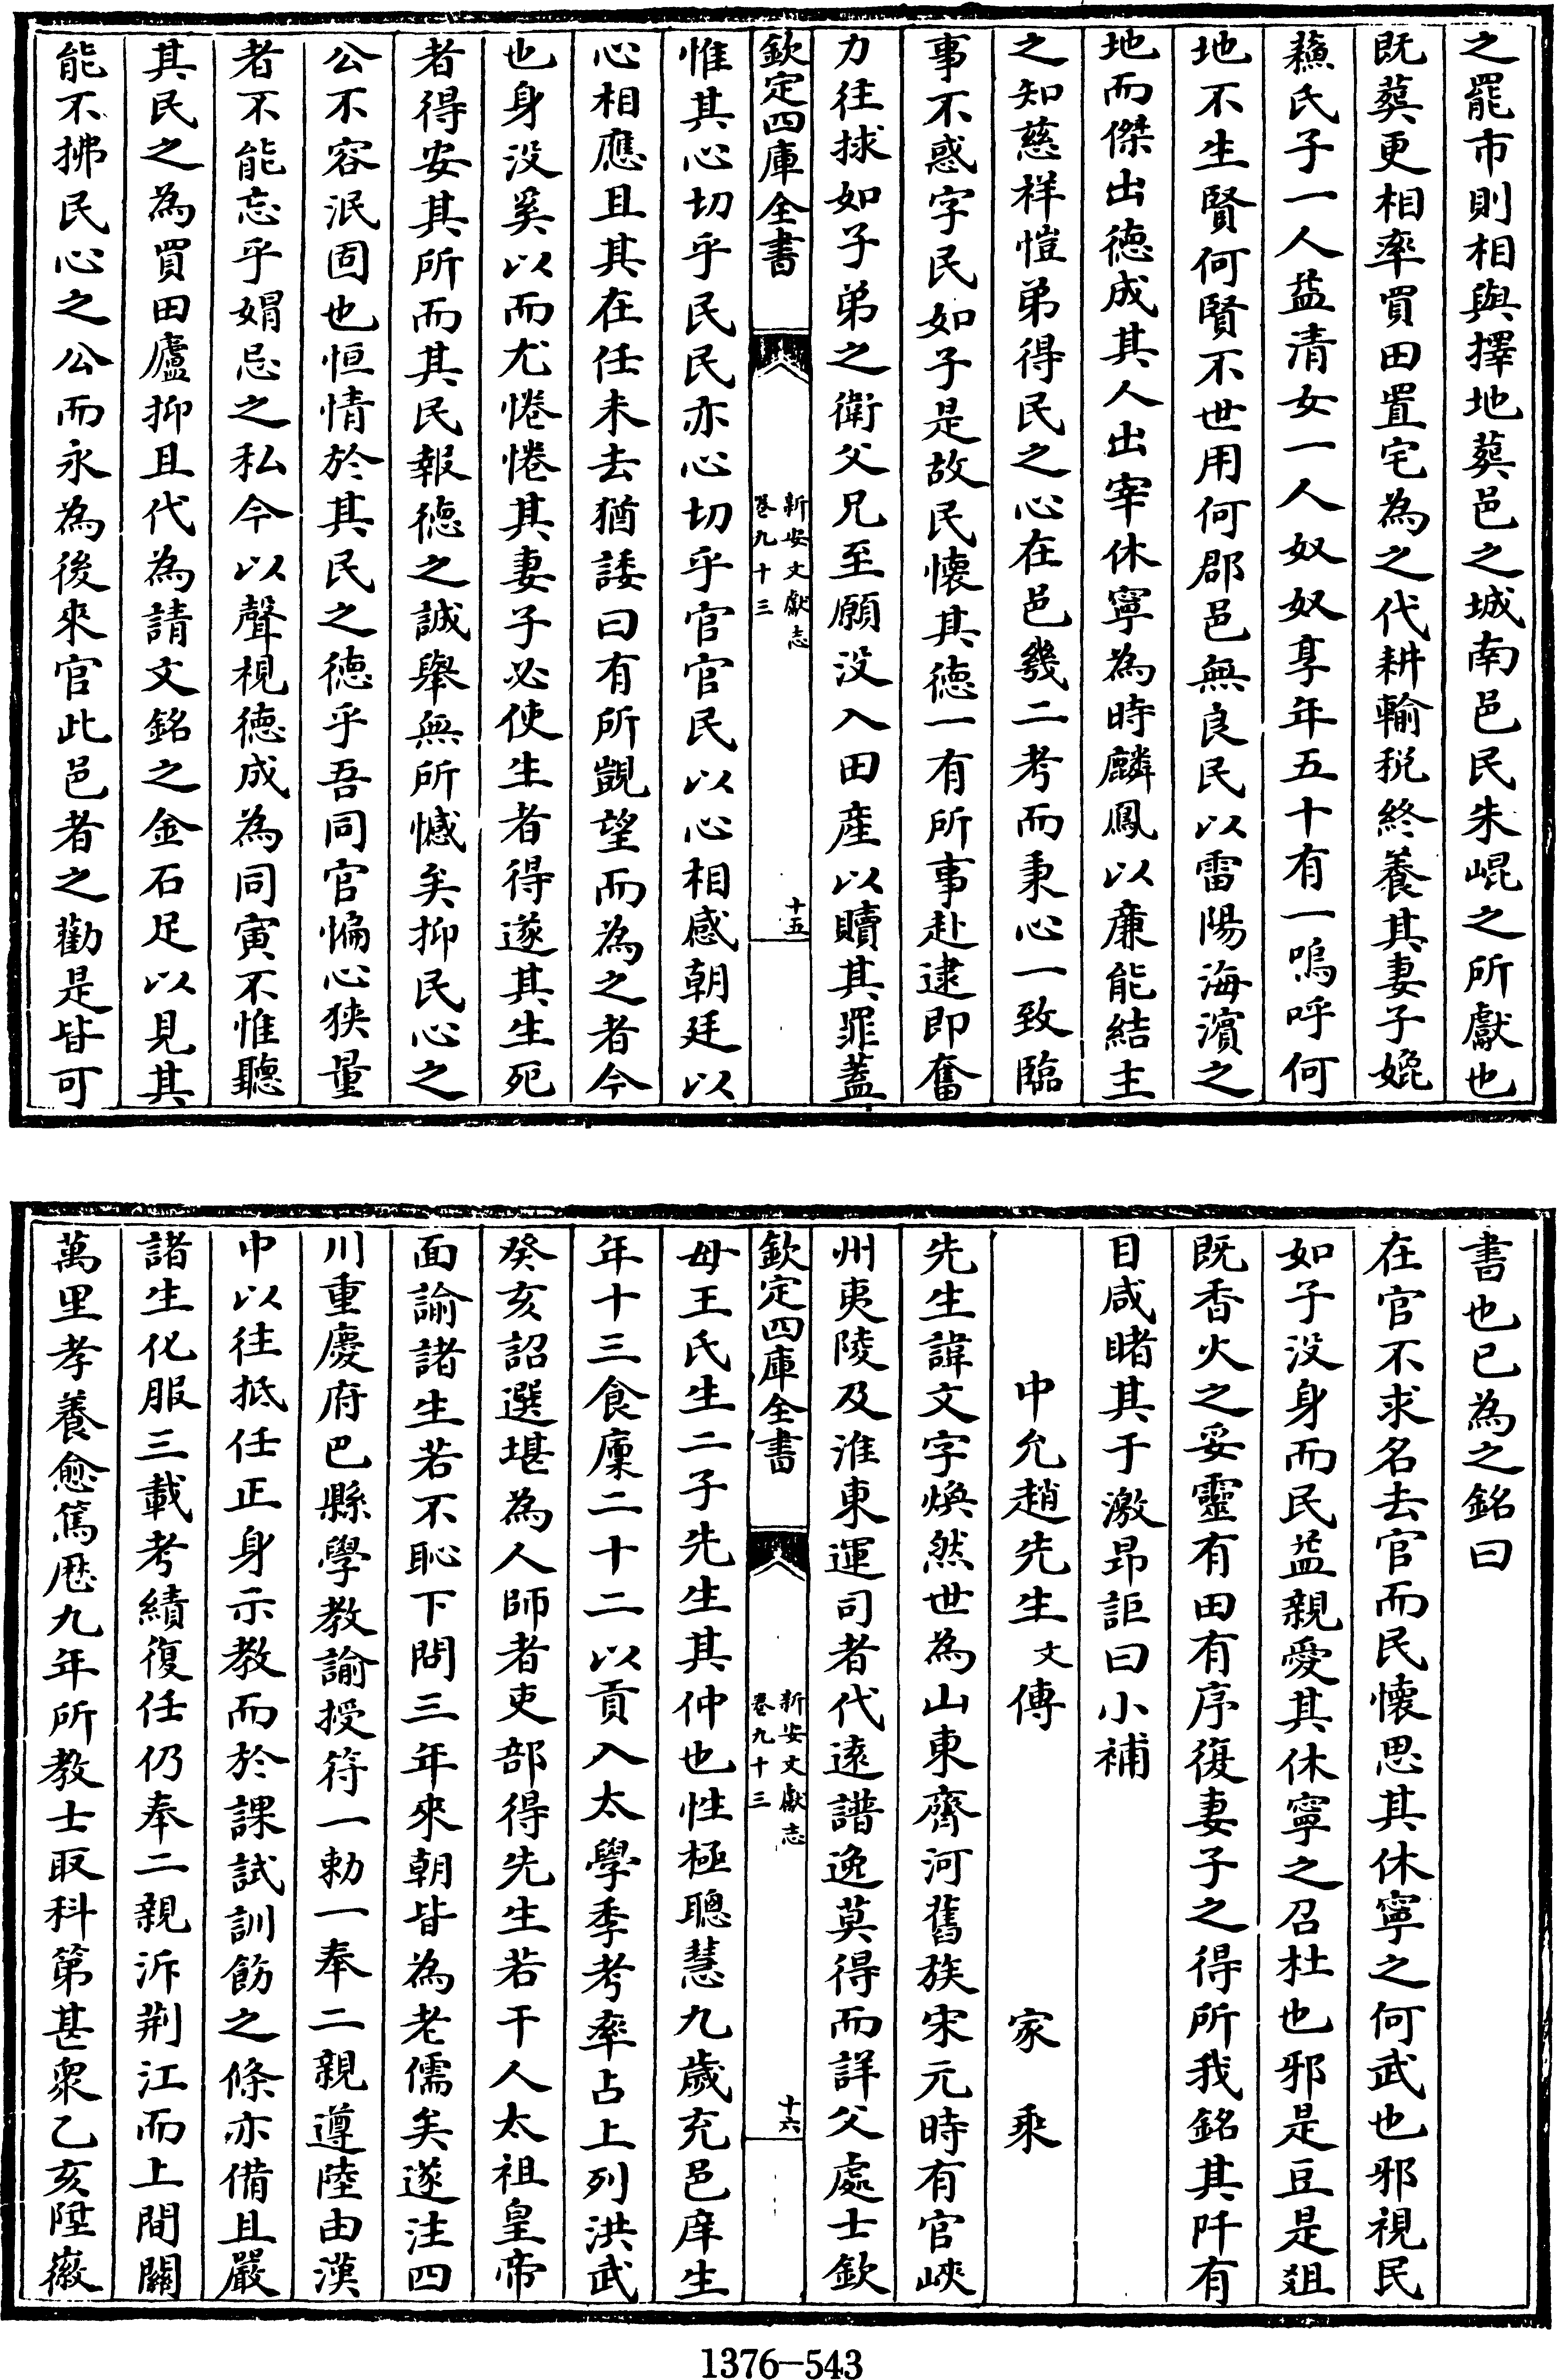 之罷市則相與擇地葬邑之城南邑民朱崐之所獻也
既葬更相率買田置宅為之代耕輸税終養其妻子媲
蘓氏子一人益清女一人奴奴享年五十有一嗚呼何
地不生賢何賢不世用何郡邑無良民以雷陽海濵之
地而傑出徳成其人出宰休寧為時麟鳳以亷能結主
之知慈祥愷弟得民之心在邑㡬二考而秉心一致臨
事不惑字民如子是故民懐其徳一有所事赴逮即奮
力往捄如子弟之衛父兄至願没入田産以贖其罪葢
欽定四庫全書
新安文獻志
卷九十三
十五
惟其心切乎民民亦心切乎官官民以心相感朝廷以
心相應且其在任未去猶諉曰有所覬望而為之者今
也身没奚以而尤惓惓其妻子必使生者得遂其生死
者得安其所而其民報徳之誠舉無所憾矣抑民心之
公不容泯固也恒情於其民之徳乎吾同官惼心狹量
者不能忘乎娟忌之私今以聲視徳成為同寅不惟聽
其民之為買田廬抑且代為請文銘之金石足以見其
能不拂民心之公而永為後來官此邑者之勸是皆可
書也已為之銘曰
在官不求名去官而民懐思其休寧之何武也邪視民
如子没身而民益親愛其休寧之召杜也邪是豆是俎
既香火之妥靈有田有序復妻子之得所我銘其阡有
目咸睹其于激昂詎曰小補
中允趙先生文傳　家乘
先生諱文字煥然世為山東齊河舊族宋元時有官峽
州夷陵及淮東運司者代逺譜逸莫得而詳父處士欽
欽定四庫全書
新安文獻志
卷九十三
十六
母王氏生二子先生其仲也性極聰慧九歲充邑庠生
年十三食廩二十二以貢入太學季考率占上列洪武
癸亥詔選堪為人師者吏部得先生若干人太祖皇帝
面諭諸生若不恥下問三年來朝皆為老儒矣遂注四
川重慶府巴縣學教諭授符一勅一奉二親遵陸由漢
中以往抵任正身示教而於課試訓飭之條亦備且嚴
諸生化服三載考績復任仍奉二親泝荆江而上間關
萬里孝養愈篤歴九年所教士取科第甚衆乙亥陞徽
1376-543